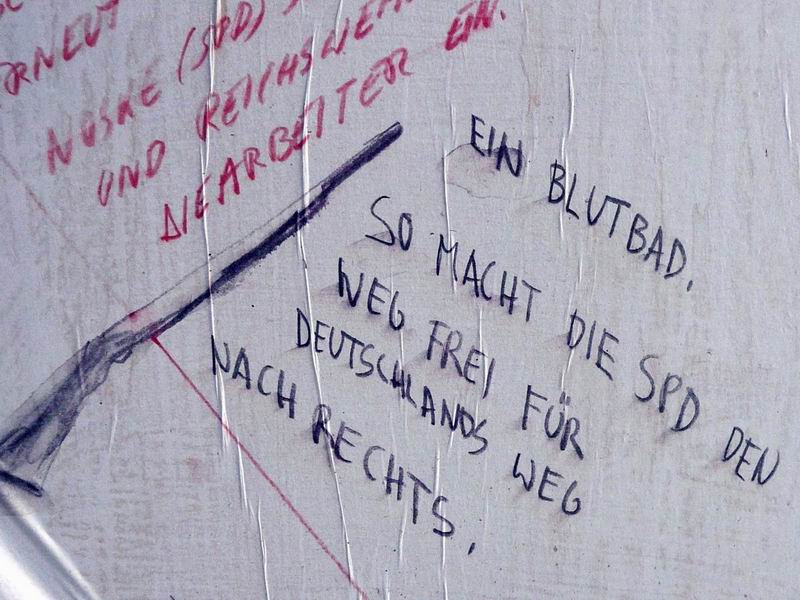 ERNEUT
NOSKE (SPD)
UND REICHSWEH
DIE ARBEITER EIN.
EIN BLUTBAD.
SO MACHT DIE SPD DEN
WEG FREI FÜR
DEUTSCHLANDS WEG
NACH RECHTS.